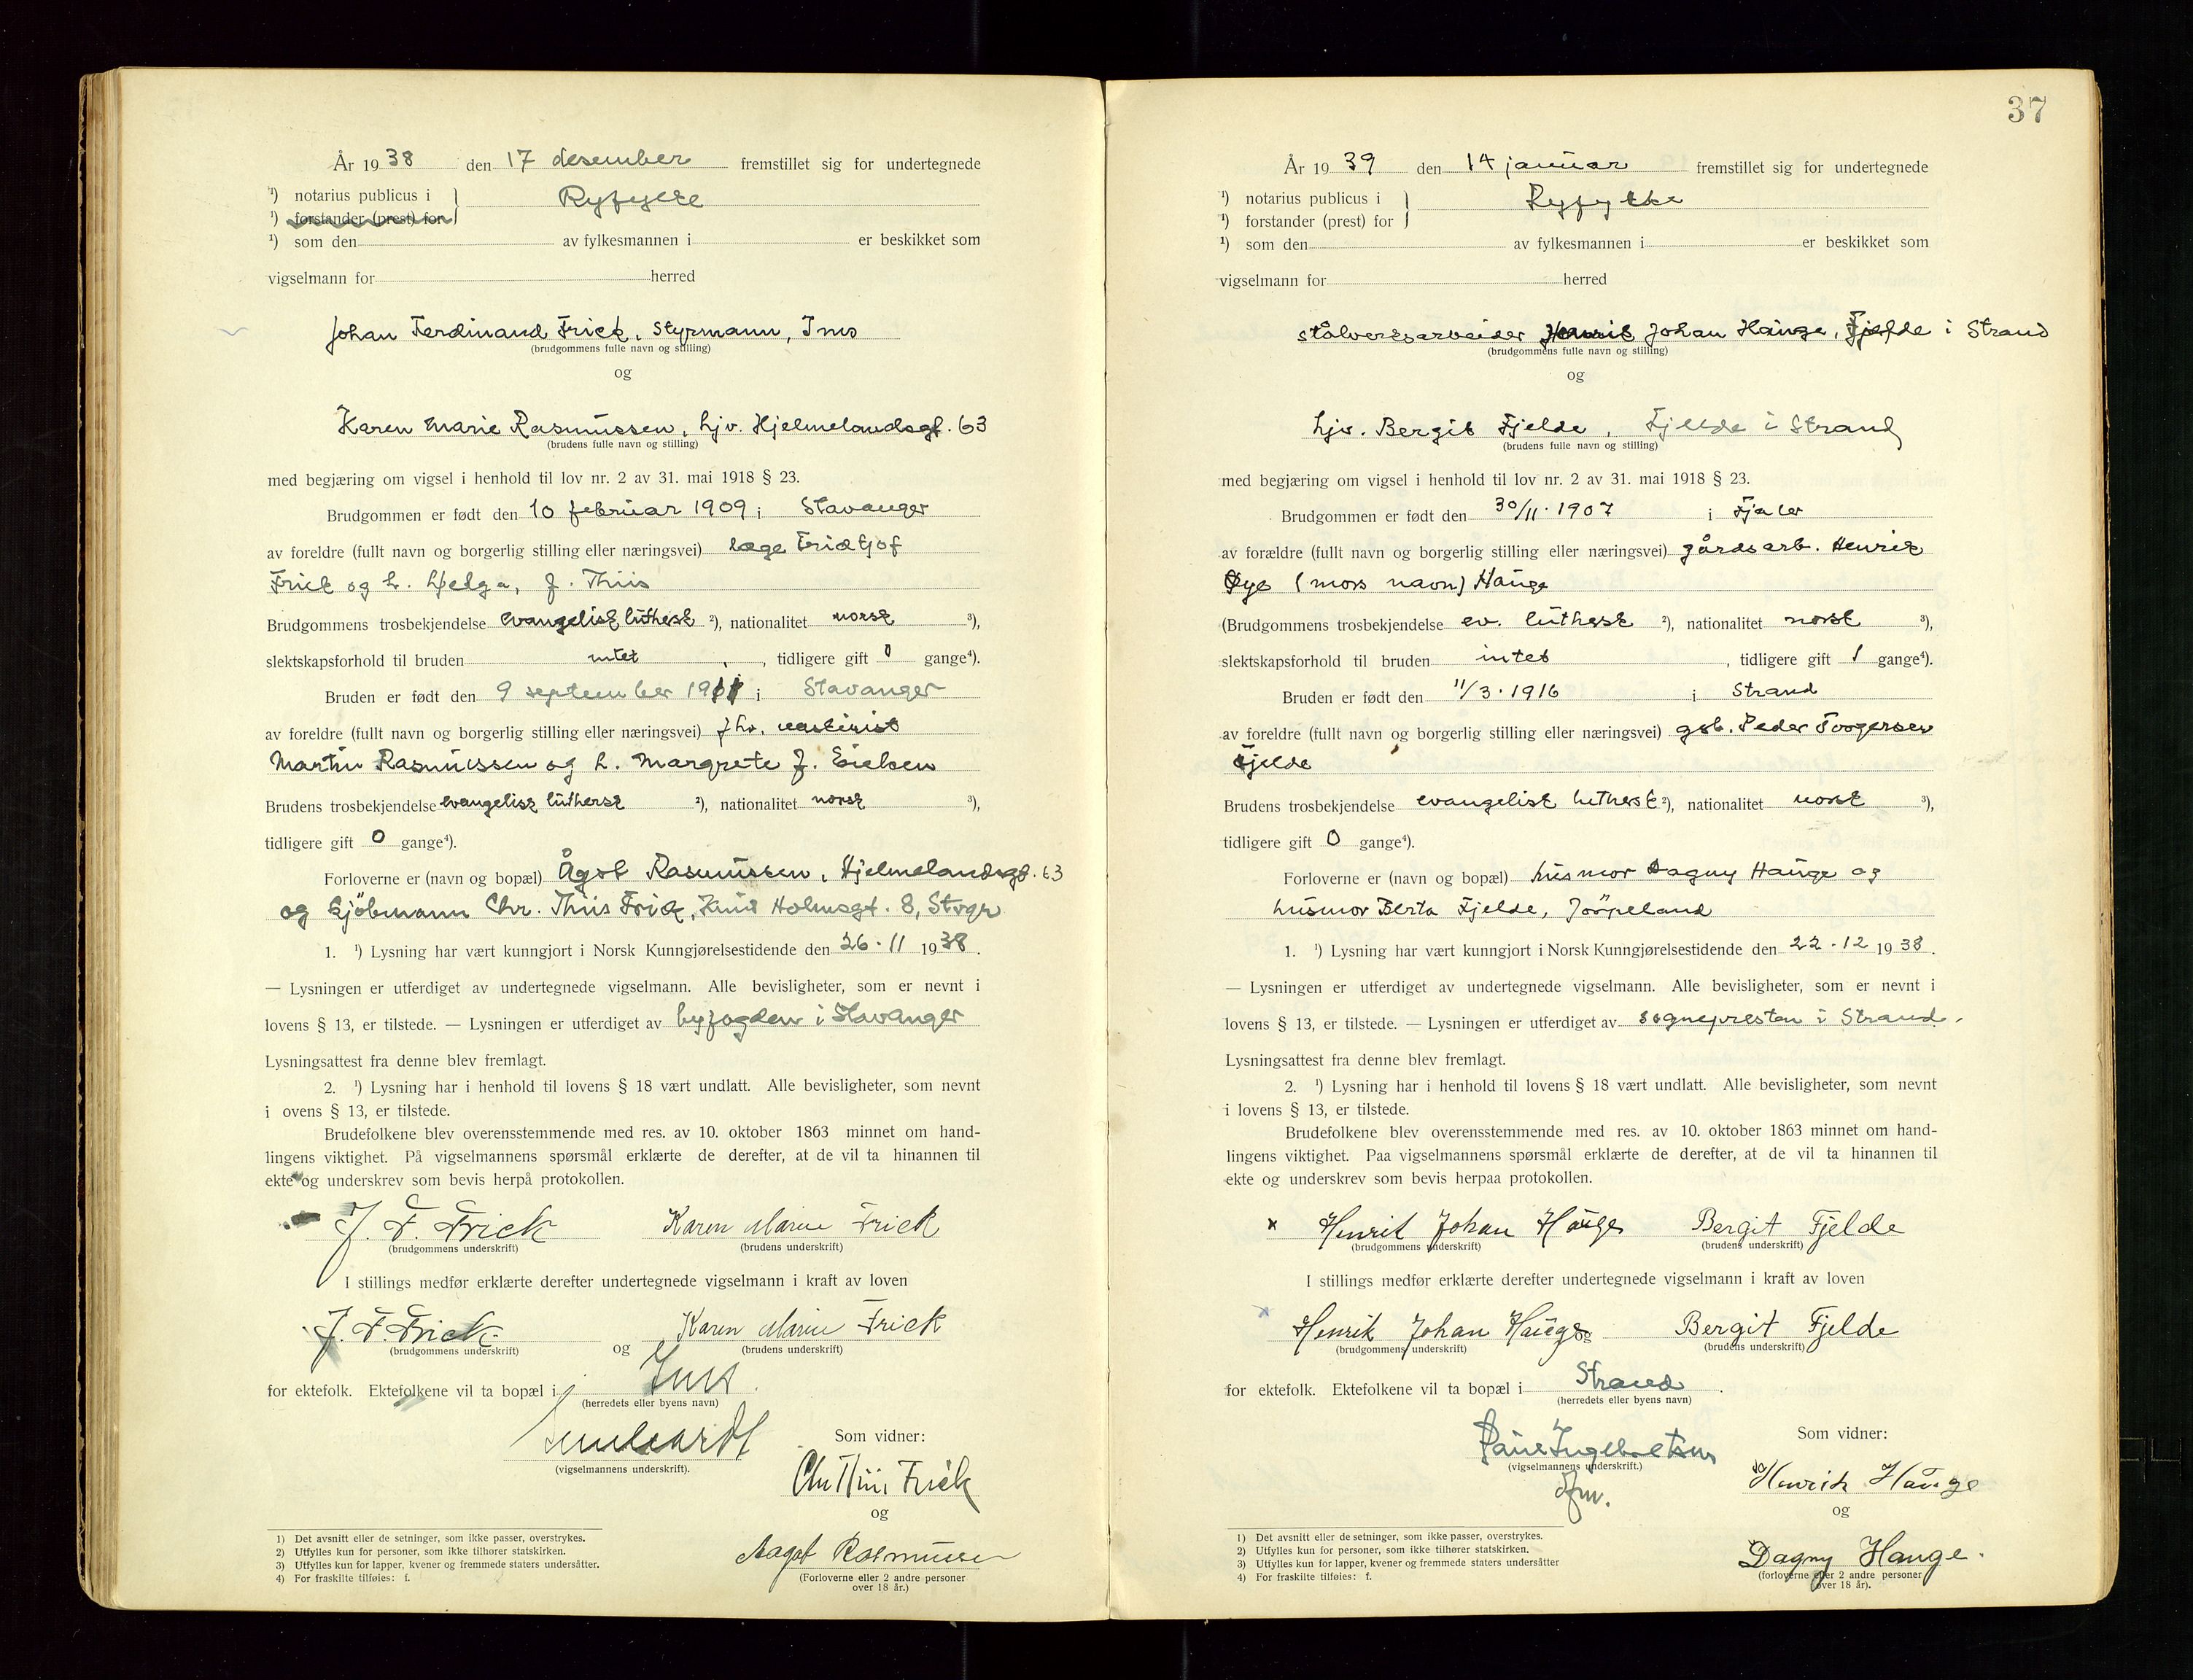 År 1938 den 17 desember fremstillet sig for undertegnede
¹) notarius publicus i } Ryfylke
¹) forstander (prest) for
¹) som den av fylkesmannen i er beskikket som
vigselmann for herred
Johan Ferdinand Frick, Styrmann, Ims
(brudgommens fulle navn og stilling)
og
Karen Marie Rasmussen, hjv. Hjelmelandsgt. 63
(brudens fulle navn og stilling)
med begjæring om vigsel i henhold til lov nr. 2 av 31. mai 1918 § 23.
Brudgommen er født den 10 februar 1909 i Stavanger
av foreldre (fullt navn og borgerlig stilling eller næringsvei) læge Fridtjof
Frick og h. Helga, f. Thiis
Brudgommens trosbekjendelse evangelisk luthersk ²), nationalitet norsk ³),
slektskapsforhold til bruden intet , tidligere gift 0 gange⁴).
Bruden er født den 9 september 1911 i Stavanger
av foreldre (fullt navn og borgerlig stilling eller næringsvei) fhv. maskinist
Martin Rasmussen og h. Margrete f. Eielsen
Brudens trosbekjendelse evangelisk luthersk ²), nationalitet norsk ³),
tidligere gift 0 gange⁴).
Forloverne er (navn og bopæl) Ågot Rasmussen, Hjelmelandsgt. 63
og Kjöbmann Chr. Thiis Frick, Knud Holmsgt. 8, Stvgr
1. ¹) Lysning har vært kunngjort i Norsk Kunngjørelsestidende den 26.11 1938.
— Lysningen er utferdiget av undertegnede vigselmann. Alle bevisligheter, som er nevnt i
lovens § 13, er tilstede. — Lysningen er utferdiget av byfogden i Stavanger
Lysningsattest fra denne blev fremlagt.
2. ¹) Lysning har i henhold til lovens § 18 vært undlatt. Alle bevisligheter, som nevnt
i ovens § 13, er tilstede.
Brudefolkene blev overensstemmende med res. av 10. oktober 1863 minnet om hand-
lingens viktighet. På vigselmannens spørsmål erklærte de derefter, at de vil ta hinannen til
ekte og underskrev som bevis herpå protokollen.
J. F. Frick Karen Marie Frick
(brudgommens underskrift) (brudens underskrift)
I stillings medfør erklærte derefter undertegnede vigselmann i kraft av loven
J. F. Frick og Karen Marie Frick
(brudgommens underskrift) (brudens underskrift)
for ektefolk. Ektefolkene vil ta bopæl i Ims.
(herredets eller byens navn)
Som vidner:
(vigselmannens underskrift).
Chr Thiis Frick
og
Aagot Rasmussen
(Forloverne eller 2 andre personer
over 18 år.)
1) Det avsnitt eller de setninger, som ikke passer, overstrykes.
2) Utfylles kun for personer, som ikke tilhører statskirken.
3) Utfylles kun for lapper, kvener og fremmede staters undersåtter.
4) For fraskilte tilføies: f.
37
År 1939 den 14 januar fremstillet sig for undertegnede
¹) notarius publicus i } Ryfylke
¹) forstander (prest) for
¹) som den av fylkesmannen i er beskikket som
vigselmann for herred
stålverksarbeider Henrik Johan Hauge, Fjelde i Strand
(brudgommens fulle navn og stilling)
og
hjv. Bergit Fjelde, Fjelde i Strand
(brudens fulle navn og stilling)
med begjæring om vigsel i henhold til lov nr. 2 av 31. mai 1918 § 23.
Brudgommen er født den 30/11.1907 i Fjaler
av forældre (fullt navn og borgerlig stilling eller næringsvei) gårdsarb. Henrik
Øye (mors navn) Hauge
(Brudgommens trosbekjendelse ev. luthersk ²), nationalitet norsk ³),
slektskapsforhold til bruden intet , tidligere gift 1 gange⁴).
Bruden er født den 11/3.1916 i Strand
av foreldre (fullt navn og borgerlig stilling eller næringsvei) gsb. Peder Torgersen
Fjelde
Brudens trosbekjendelse evangelisk luthersk ²), nationalitet norsk ³),
tidligere gift 0 gange⁴).
Forloverne er (navn og bopæl) husmor Dagny Hauge og
husmor Berta Fjelde, Jörpeland
1. ¹) Lysning har vært kunngjort i Norsk Kunngjørelsestidende den 22.12 1938.
— Lysningen er utferdiget av undertegnede vigselmann. Alle bevisligheter, som er nevnt i
lovens § 13, er tilstede. — Lysningen er utferdiget av sognepresten i Strand.
Lysningsattest fra denne blev fremlagt.
2. ¹) Lysning har i henhold til lovens § 18 vært undlatt. Alle bevisligheter, som nevnt
i lovens § 13, er tilstede.
Brudefolkene blev overensstemmende med res. av 10. oktober 1863 minnet om hand-
lingens viktighet. Paa vigselmannens spørsmål erklærte de derefter, at de vil ta hinannen til
ekte og underskrev som bevis herpaa protokollen.
x Henrik Johan Hauge Bergit Fjelde
(brudgommens underskrift) (brudens underskrift)
I stillings medfør erklærte derefter undertegnede vigselmann i kraft av loven
x Henrik Johan Hauge og Bergit Fjelde
(brudgommens underskrift) (brudens underskrift)
for ektefolk. Ektefolkene vil ta bopæl i Strand.
(herredets eller byens navn)
Som vidner:
Ingebretsen
(vigselmannens underskrift.)
dfm.
Henrich Hauge
og
Dagny Hauge.
(forloverne eller 2 andre personer
over 18 år).
1) Det avsnitt eller de setninger, som ikke passer, overstrykes.
2) Utfylles kun for personer, som ikke tilhører statskirken.
3) Utfylles kun for lapper, kvener og fremmede staters undersåtter
4) For fraskilte tilføies: f.